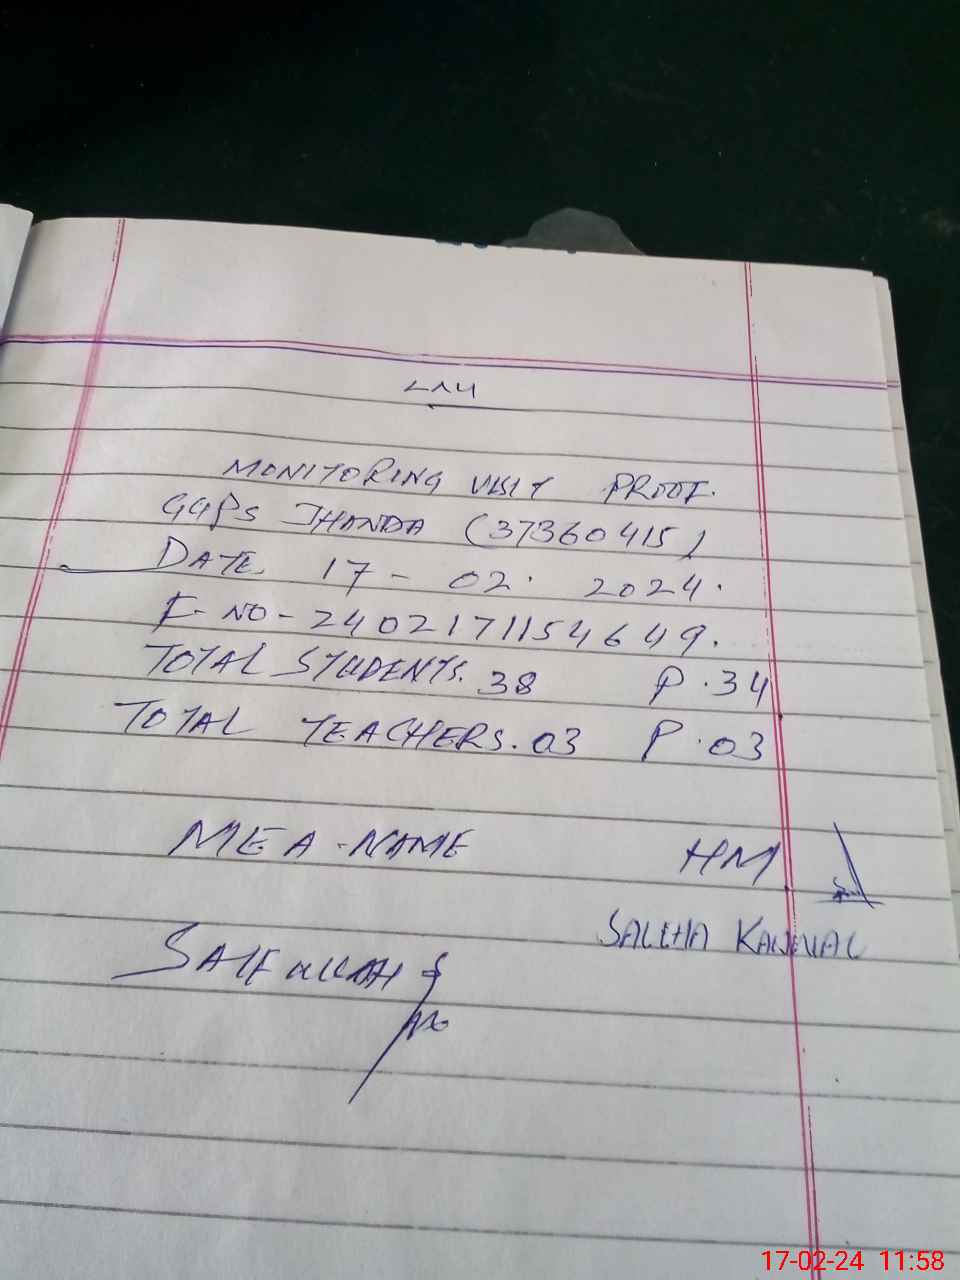 MONITORING VISIT PROOF.
GGPS JHANDA (37360415)
DATE 17-02.2024.
F-NO-24021711154649.
TOTAL STUDENTS. 38 P.34
TOTAL TEACHERS.03 P.03
MEA-NAME HM
SALEHA KANWAL
SAIFULLAH
17-02-24 11:58